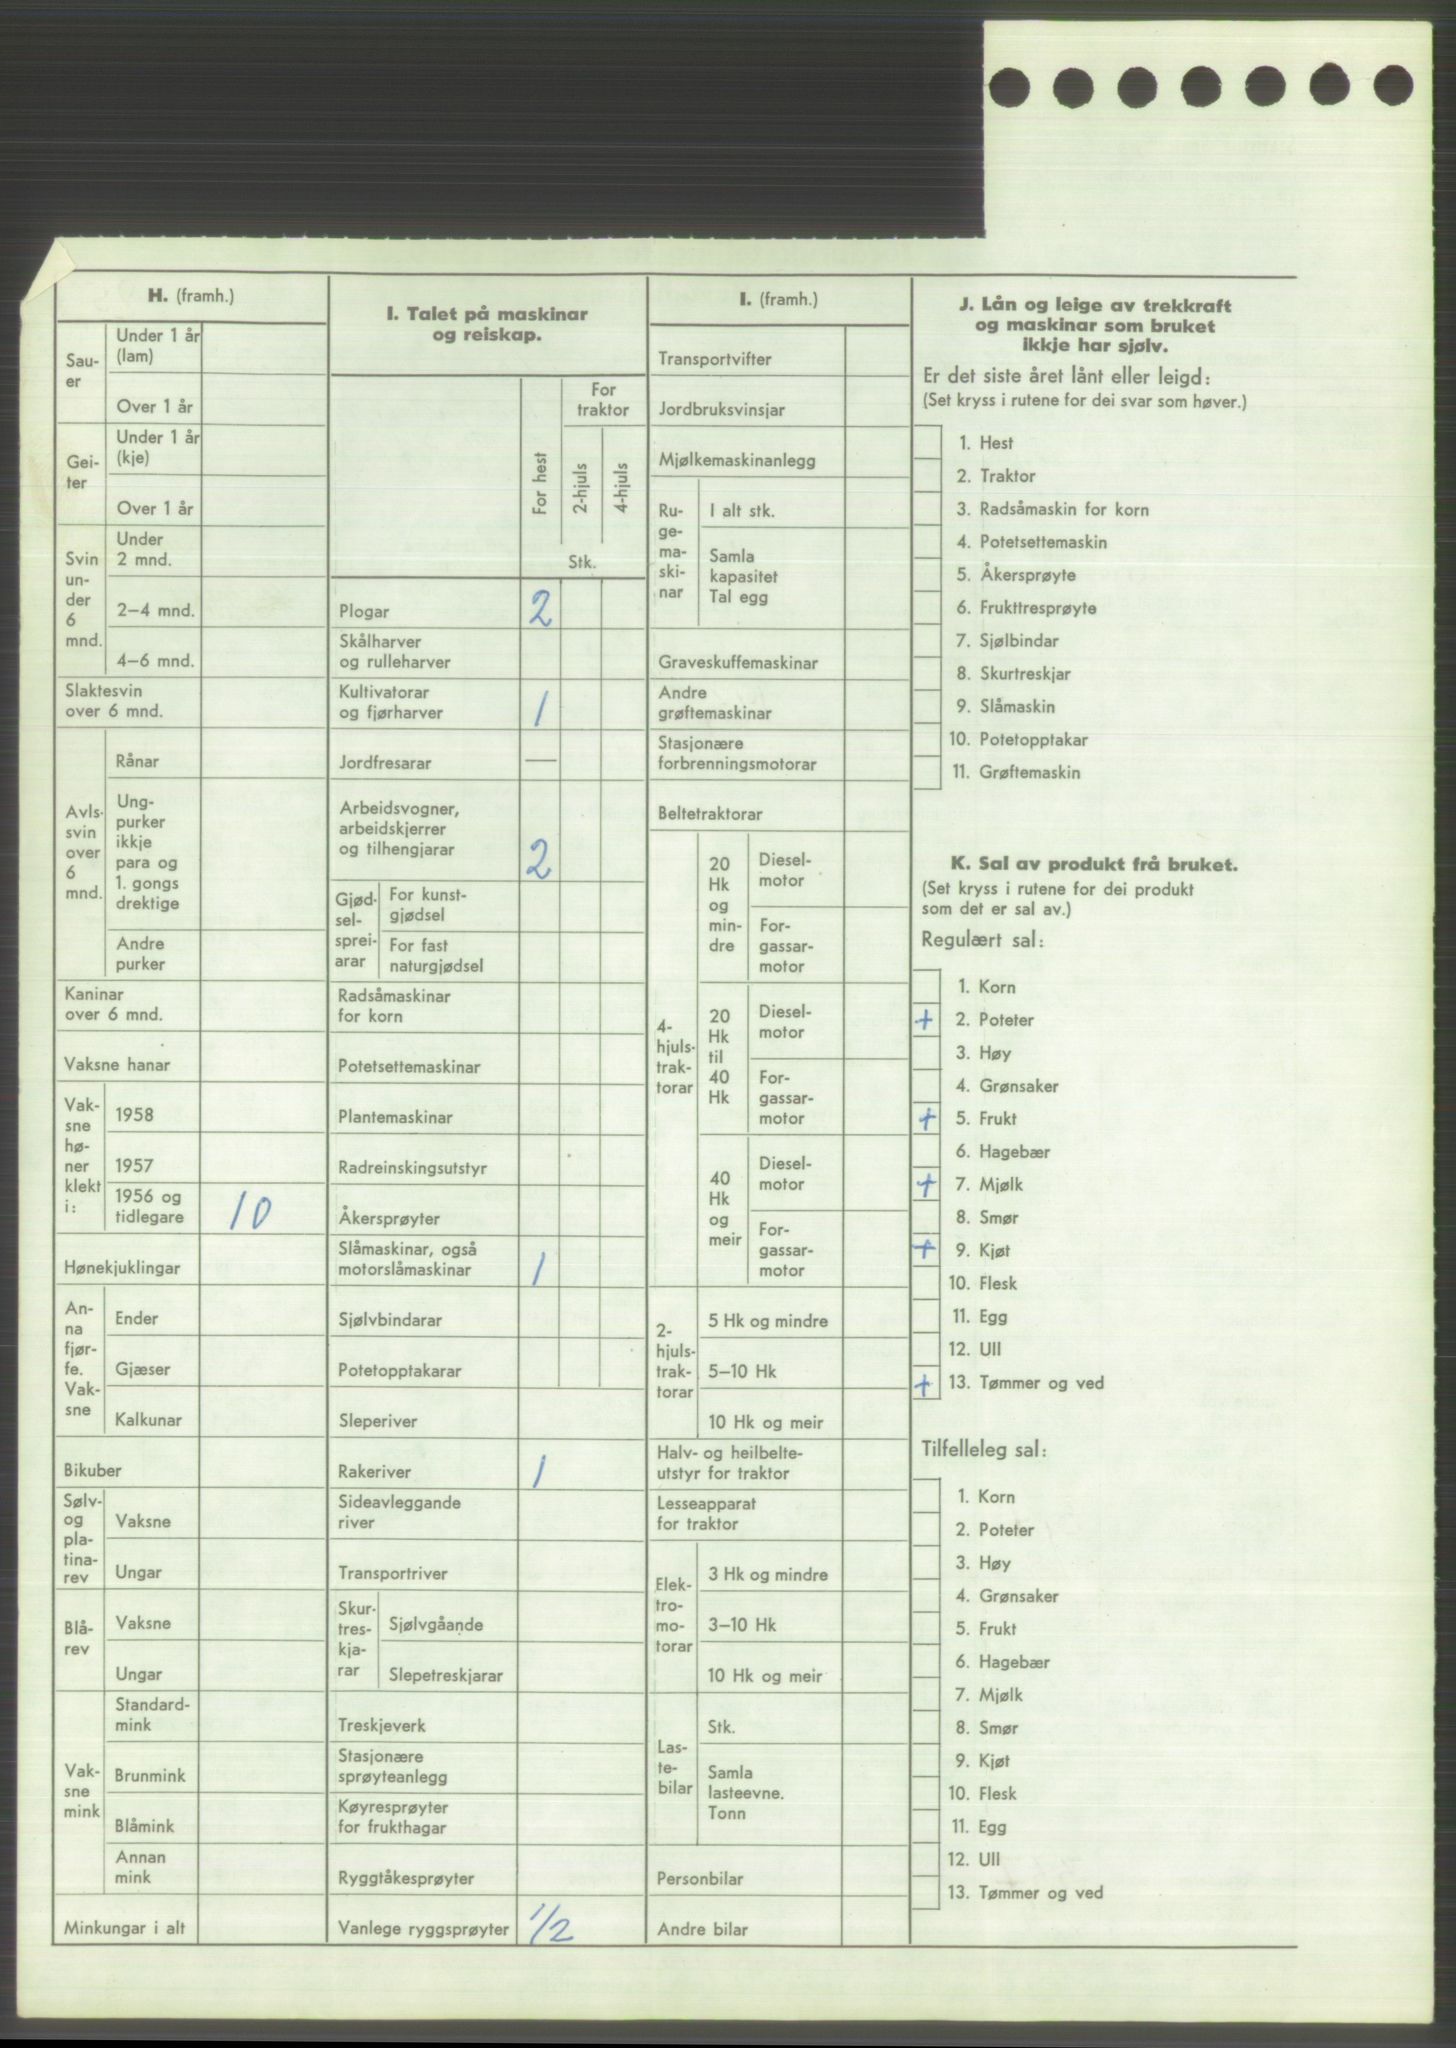 H. (framh.)
Sau-
er
Under 1 år
(lam)
Over 1 år
Gei-
ter
Under 1 år
(kje)
Over 1 år
Svin
un-
der
6
mnd.
Under
2 mnd.
2–4 mnd.
4–6 mnd.
Slaktesvin
over 6 mnd.
Avls-
svin
over
6
mnd.
Rånar
Ung-
purker
ikkje
para og
1. gongs
drektige
Andre
purker
Kaninar
over 6 mnd.
Vaksne hanar
Vak-
sne
hø-
ner
klekt
i:
1958
1957
1956 og
tidlegare 10
Hønekjuklingar
An-
na
fjør-
fe.
Vak-
sne
Ender
Gjæser
Kalkunar
Bikuber
Sølv-
og
pla-
tina-
rev
Vaksne
Ungar
Blå-
rev
Vaksne
Ungar
Vak-
sne
mink
Standard-
mink
Brunmink
Blåmink
Annan
mink
Minkungar i alt
I. Talet på maskinar
og reiskap.
For hest
For
traktor
2-hjuls
4-hjuls
Stk.
Plogar 2
Skålharver
og rulleharver
Kultivatorar
og fjørharver 1
Jordfresarar —
Arbeidsvogner,
arbeidskjerrer
og tilhengjarar 2
Gjød-
sel-
sprei-
arar
For kunst-
gjødsel
For fast
naturgjødsel
Radsåmaskinar
for korn
Potetsettemaskinar
Plantemaskinar
Radreinskingsutstyr
Åkersprøyter
Slåmaskinar, også
motorslåmaskinar 1
Sjølvbindarar
Potetopptakarar
Sleperiver
Rakeriver 1
Sideavleggande
river
Transportriver
Skur-
tres-
kja-
rar
Sjølvgåande
Slepetreskjarar
Treskjeverk
Stasjonære
sprøyteanlegg
Køyresprøyter
for frukthagar
Ryggtåkesprøyter
Vanlege ryggsprøyter 1/2
I. (framh.)
Transportvifter
Jordbruksvinsjar
Mjølkemaskinanlegg
Ru-
ge-
ma-
ski-
nar
I alt stk.
Samla
kapasitet
Tal egg
Graveskuffemaskinar
Andre
grøftemaskinar
Stasjonære
forbrenningsmotorar
Beltetraktorar
4-
hjuls-
trak-
torar
20
Hk
og
min-
dre
Diesel-
motor
For-
gassar-
motor
20
Hk
til
40
Hk
Diesel-
motor
For-
gassar-
motor
40
Hk
og
meir
Diesel-
motor
For-
gassar-
motor
2-
hjuls-
trak-
torar
5 Hk og mindre
5–10 Hk
10 Hk og meir
Halv- og heilbelte-
utstyr for traktor
Lesseapparat
for traktor
Elek-
tro-
mo-
torar
3 Hk og mindre
3–10 Hk
10 Hk og meir
Las-
te-
bilar
Stk.
Samla
lasteevne.
Tonn
Personbilar
Andre bilar
J. Lån og leige av trekkraft
og maskinar som bruket
ikkje har sjølv.
Er det siste året lånt eller leigd:
(Set kryss i rutene for dei svar som høver.)
1. Hest
2. Traktor
3. Radsåmaskin for korn
4. Potetsettemaskin
5. Åkersprøyte
6. Frukttresprøyte
7. Sjølbindar
8. Skurtreskjar
9. Slåmaskin
10. Potetopptakar
11. Grøftemaskin
K. Sal av produkt frå bruket.
(Set kryss i rutene for dei produkt
som det er sal av.)
Regulært sal:
1. Korn
+ 2. Poteter
3. Høy
4. Grønsaker
+ 5. Frukt
6. Hagebær
+ 7. Mjølk
8. Smør
+ 9. Kjøt
10. Flesk
11. Egg
12. Ull
+ 13. Tømmer og ved
Tilfelleleg sal:
1. Korn
2. Poteter
3. Høy
4. Grønsaker
5. Frukt
6. Hagebær
7. Mjølk
8. Smør
9. Kjøt
10. Flesk
11. Egg
12. Ull
13. Tømmer og ved